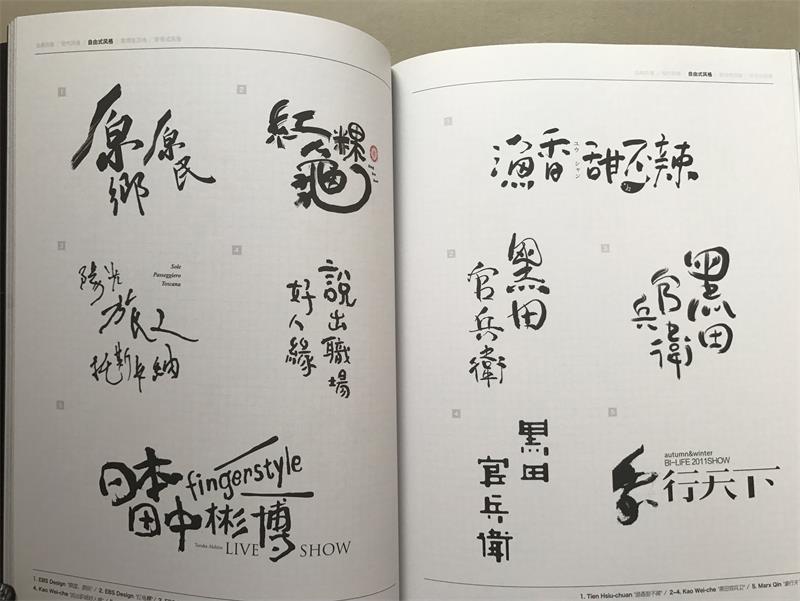 自由式风格
1
原鄉
原民
2
紅龜粿
3
陽光
旅人
托斯卡納
Sole
Passeggiero
Toscana
4
說出職場
好人緣
5
日本
fingerstyle
田中彬博
Tanaka Akihiro
LIVE SHOW
4. Kao Wei-che
自由式风格
1
漁香甜不辣
ユウ シャン
2
黑田
官兵衛
3
黑田
官兵衛
4
黑田
官兵衛
5
autumn&winter
BI-LIFE 2011SHOW
象行天下
1. Tien Hsiu-chuan "漁香甜不辣" / 2–4. Kao Wei-che "黑田官兵卫" / 5. Marx Qin "象行天下"